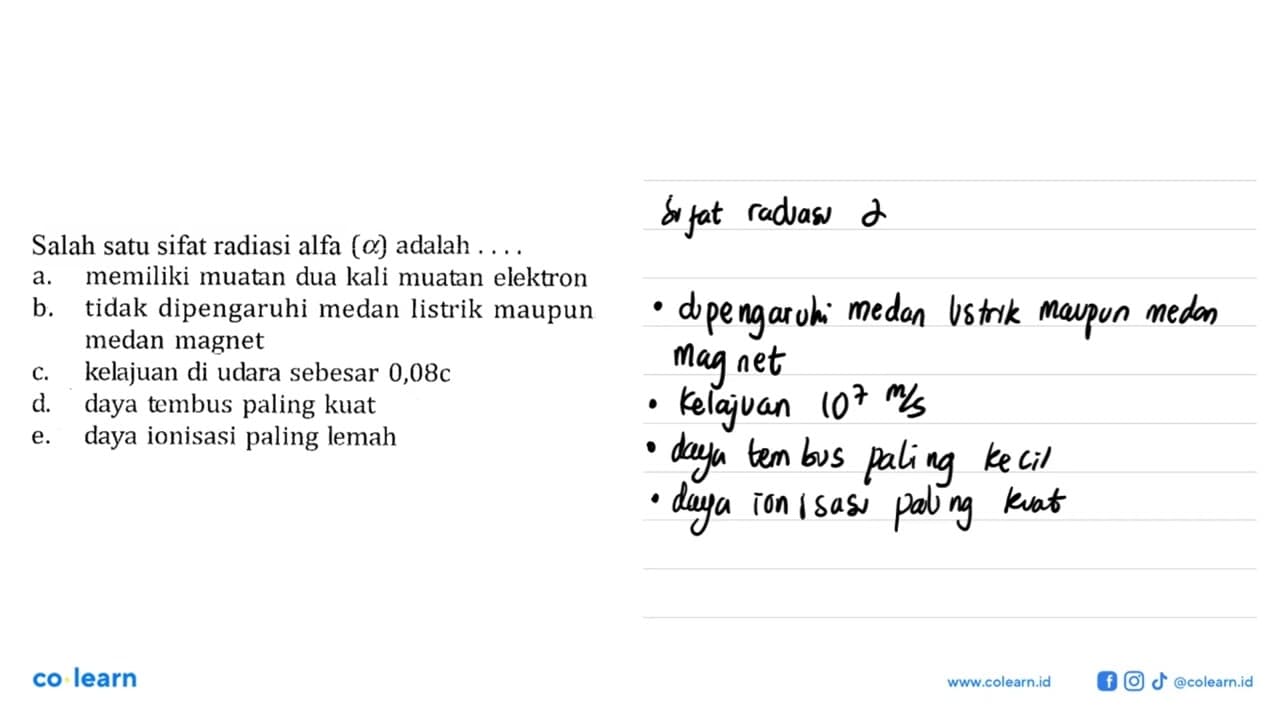 Salah satu sifat radiasi alfa (α) adalah . . . .
a. memiliki muatan dua kali muatan elektron
b. tidak dipengaruhi medan listrik maupun
medan magnet
c. kelajuan di udara sebesar 0,08c
d. daya tembus paling kuat
e. daya ionisasi paling lemah
Sifat radiasi α
• dipengaruhi medan listrik maupun medan
magnet
• kelajuan 10⁷ m/s
• daya tembus paling kecil
• daya ionisasi paling kuat
co learn
www.colearn.id
@colearn.id